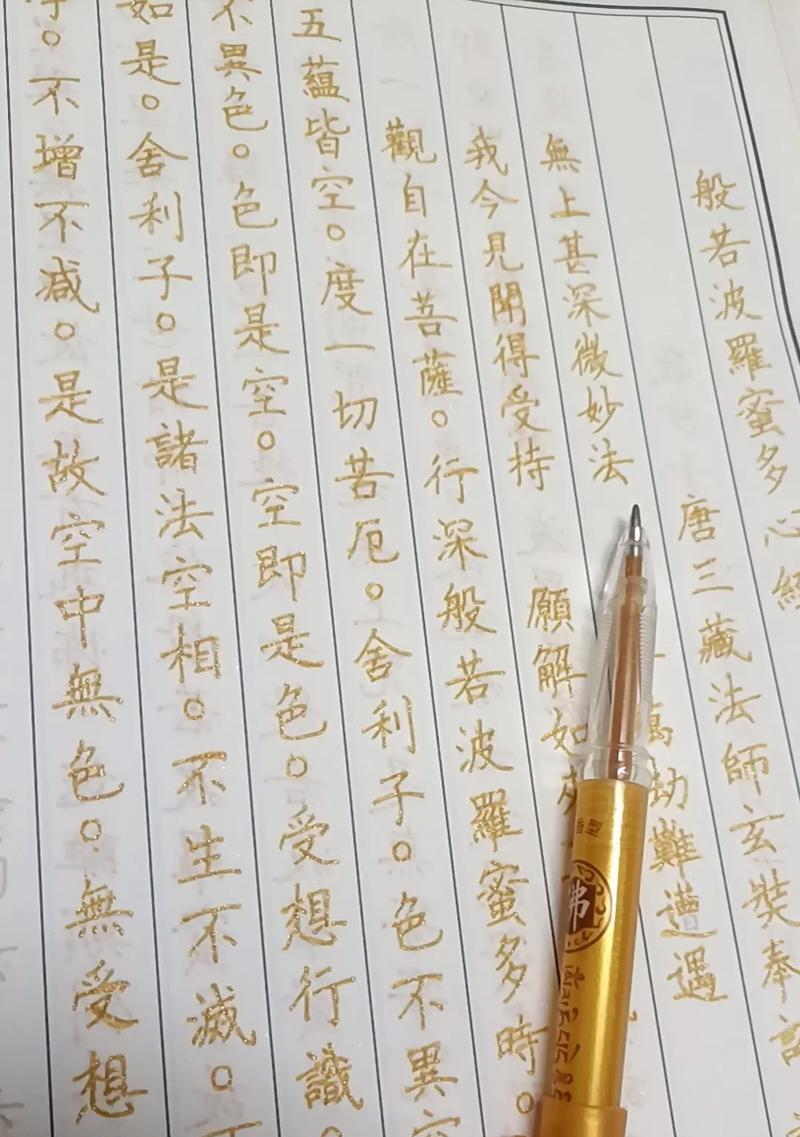 般若波羅蜜多心經
唐三藏法師玄奘奉
無上甚深微妙法
萬劫難遭遇
我今見聞得受持
願解如來
觀自在菩薩。行深般若波羅蜜多時。
五蘊皆空。度一切苦厄。舍利子。色不異空
不異色。色即是空。空即是色。受想行識
如是。舍利子。是諸法空相。不生不滅。不
不增不減。是故空中無色。無受想
佛